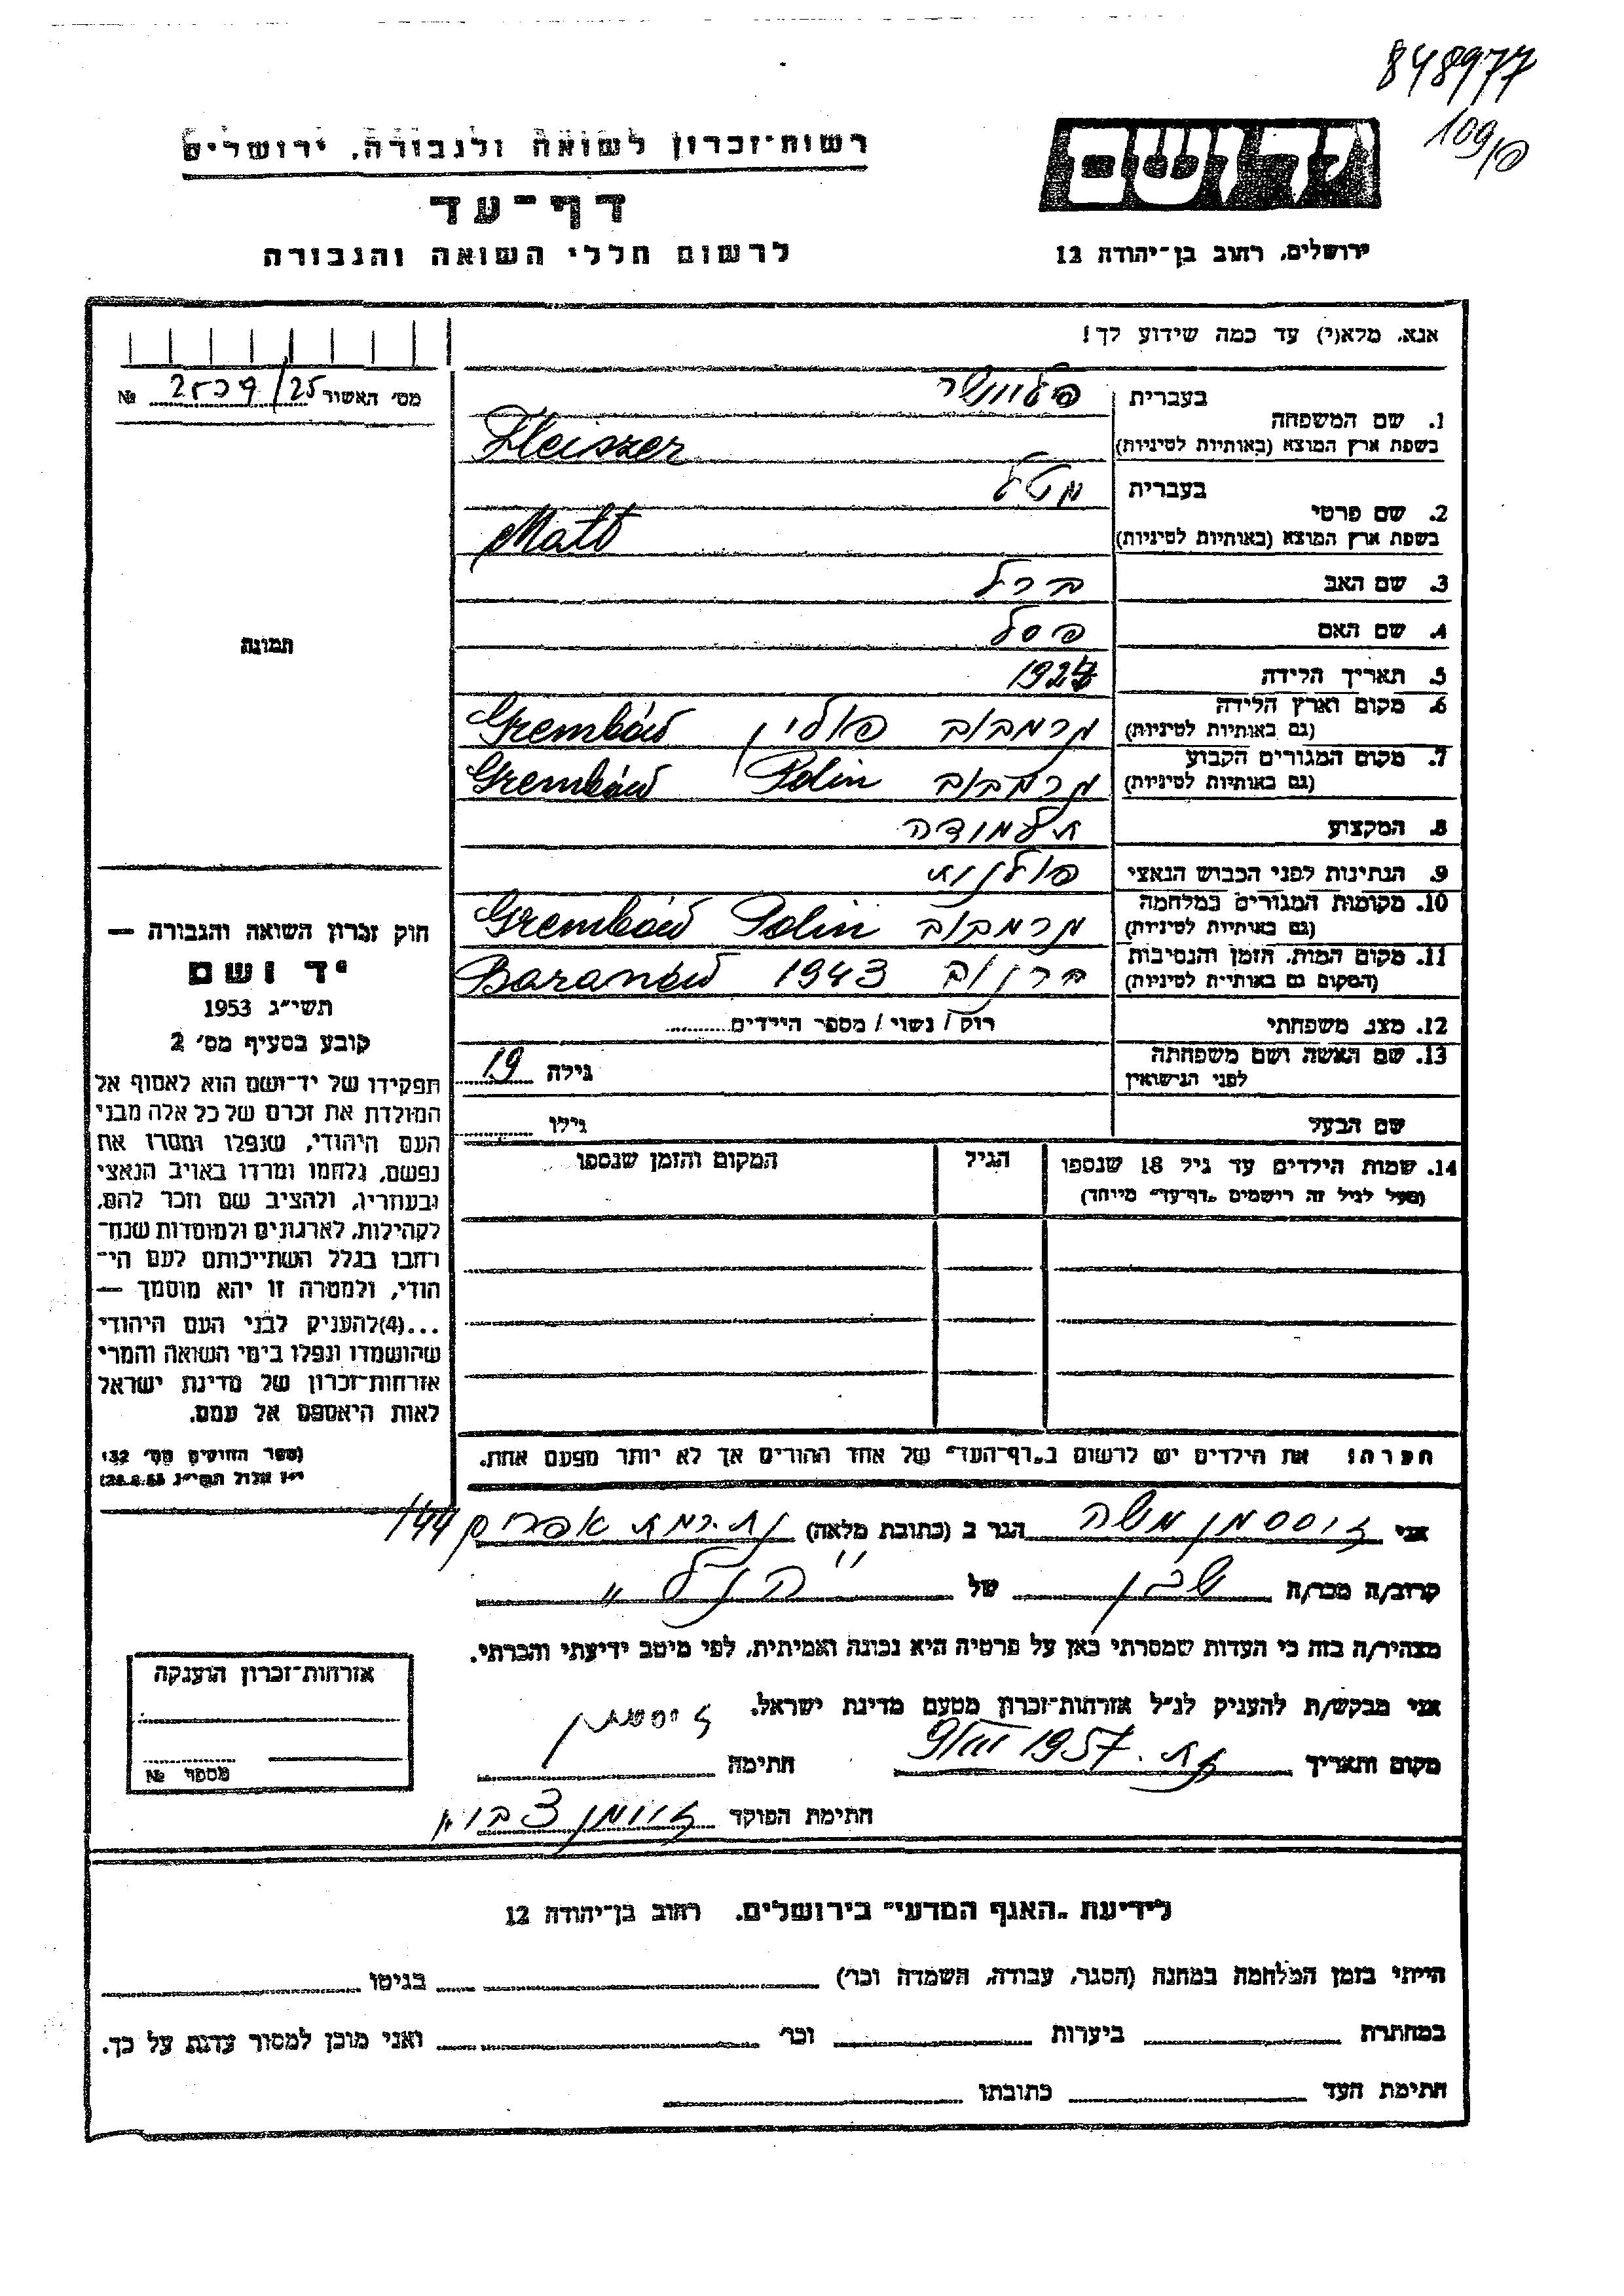 848977
109/פ
רשות־זכרון לשואה ולגבורה, ירושלים
יד ושם
דף־עד
לרשום חללי השואה והגבורה
ירושלים, רחוב בן־יהודה 12
אנא, מלא(י) עד כמה שידוע לך!
מס׳ האשור 2539/25 №
1. שם המשפחה
בעברית פליישר
בשפת ארץ המוצא (באותיות לטיניות) Fleiszer
2. שם פרטי
בעברית מטל
בשפת ארץ המוצא (באותיות לטיניות) Matl
3. שם האב ברל
4. שם האם פסל
5. תאריך הלידה 1924
6. מקום וארץ הלידה
(גם באותיות לטיניות) גרמבוב פולין Grembów
7. מקום המגורים הקבוע
(גם באותיות לטיניות) גרמבוב Polin Grembów
8. המקצוע תלמודה
9. הנתינות לפני הכבוש הנאצי פולנית
10. מקומות המגורים במלחמה
(גם באותיות לטיניות) גרמבוב Grembów Polin
11. מקום המות, הזמן והנסיבות
(המקום גם באותיות לטיניות) ברנוב 1943 Baranów
12. מצב משפחתי רוק / נשוי / מספר הילדים
13. שם האשה ושם משפחתה
לפני הנישואין גילה 19
שם הבעל גילו
14. שמות הילדים עד גיל 18 שנספו
(מעל לגיל זה רושמים „דף־עד” מיוחד)
הגיל
המקום והזמן שנספו
הערה: את הילדים יש לרשום ב„דף־העד” של אחד ההורים אך לא יותר מפעם אחת.
תמונה
חוק זכרון השואה והגבורה —
יד ושם
תשי״ג 1953
קובע בסעיף מס׳ 2
תפקידו של יד־ושם הוא לאסוף אל
המולדת את זכרם של כל אלה מבני
העם היהודי, שנפלו ומסרו את
נפשם, נלחמו ומרדו באויב הנאצי
ובעוזריו, ולהציב שם וזכר להם,
לקהילות, לארגונים ולמוסדות שנח־
רחבו בגלל השתייכותם לעם הי־
הודי, ולמטרה זו יהא מוסמך —
...(4)להעניק לבני העם היהודי
שהושמדו ונפלו בימי השואה והמרי
אזרחות־זכרון של מדינת ישראל
לאות היאספם אל עמם.
(ספר החוקים מס׳ 132
י״ז אלול תשי״ג 28.8.53)
אני זוסמן משה הגר ב (כתובת מלאה) נת. רמת אפרים 144
קרוב/ה מכר/ה שכן של ״הנ״ל״
מצהיר/ה בזה כי העדות שמסרתי כאן על פרטיה היא נכונה ואמיתית, לפי מיטב ידיעתי והכרתי.
אני מבקש/ת להעניק לנ״ל אזרחות־זכרון מטעם מדינת ישראל.
מקום ותאריך נת. 9/III 1957 חתימה זוסמן
חתימת הפוקד
אזרחות־זכרון הוענקה
מספר №
לידיעת „האגף המדעי” בירושלים, רחוב בן־יהודה 12
הייתי בזמן המלחמה במחנה (הסגר, עבודה, השמדה וכו׳) בגיטו
במחתרת ביערות וכו׳ ואני מוכן למסור עדות על כך.
חתימת העד כתובתו